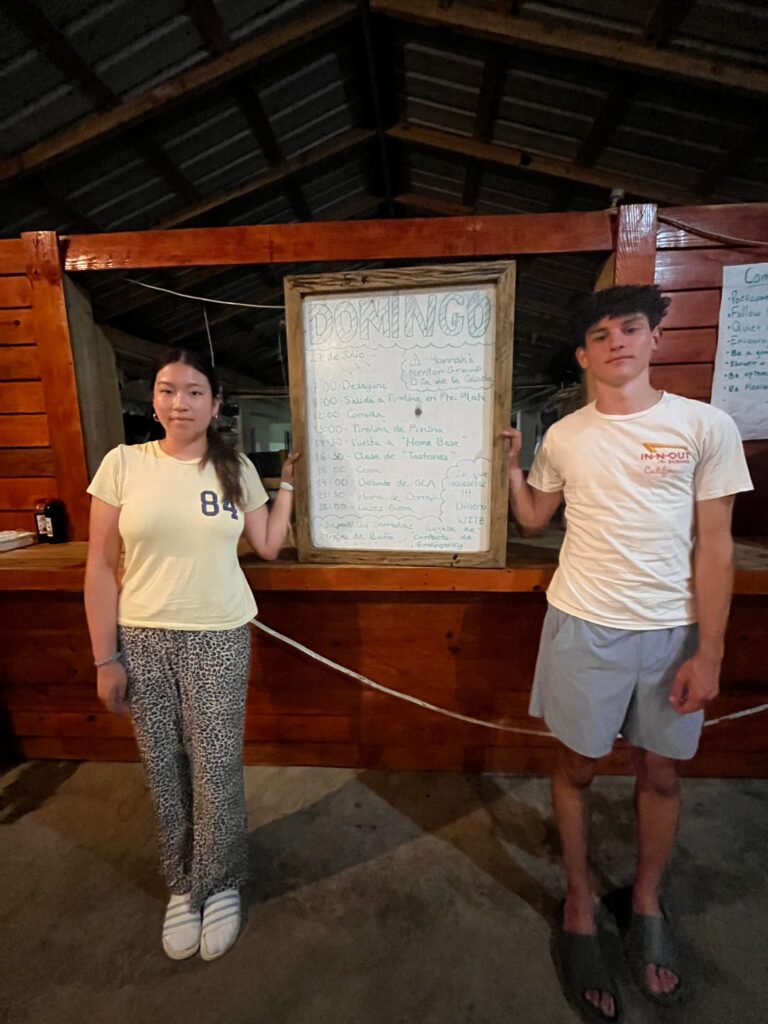 DOMINGO
27 de Julio
Hannah's
Mentor Group
Día de la
7:00 Desayuno
8:00 Salida a Tirolina en Pto. Plata
12:00 Comida
13:00 Tirolina de Piscina
14:30 Vuelta a "Home Base"
16:30 Clase de "Tostones"
18:00 Cena
19:00 Debate de GLA
21:30 Hora de Dormir
22:00 Luces fuera
Lo que
necesitas
!!!
Dinero
Zapatillas cerradas
Trajes de Baño
Tarjeta de
contacto de
84
IN-N-OUT
BURGER
California
Com
Follow
Quiet
Encoura
Be a go
Be